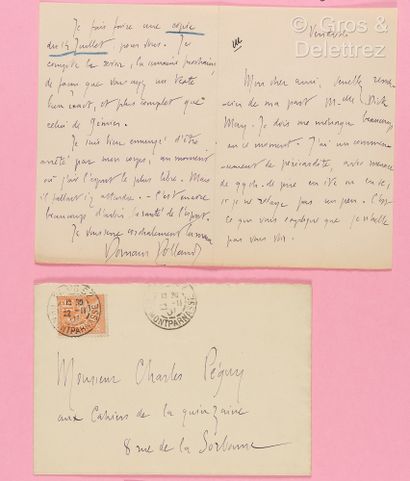 © Gros &
Delettrez
Vendredi
Mon cher ami, veuillez remer-
cier de ma part M-elle Dick
May. Je dois me ménager beaucoup
en ce moment. J'ai un commen-
cement de péricardite, avec menace
de qqch. de pire en ité ou en ie,
si je ne relâge pas un peu. C'est
ce que vous explique que je n'aille
pas vous voir.
Je fais faire une copie
du 14 Juillet, pour vous. Je
compte la revoir, la semaine prochaine,
de façon que vous ayez un texte
bien exact, et plus complet que
celui de Gémier.
Je suis bien ennuyé d'être
arrêté par mon corps, au moment
où j'ai l'esprit le plus libre. Mais
il fallait s'y attendre. - C'est encore
beaucoup d'avoir la santé de l'esprit.
Je vous serre cordialement la main
Romain Rolland
MONTPARNASSE
MONTPARNASSE
Monsieur Charles Péguy
aux Cahiers de la quinzaine
8 rue de la Sorbonne